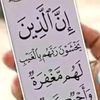 إِنَّ الَّذِينَ
يَخْشَوْنَ رَبَّهُم بِالْغَيْبِ
لَهُم مَّغْفِرَةٌ